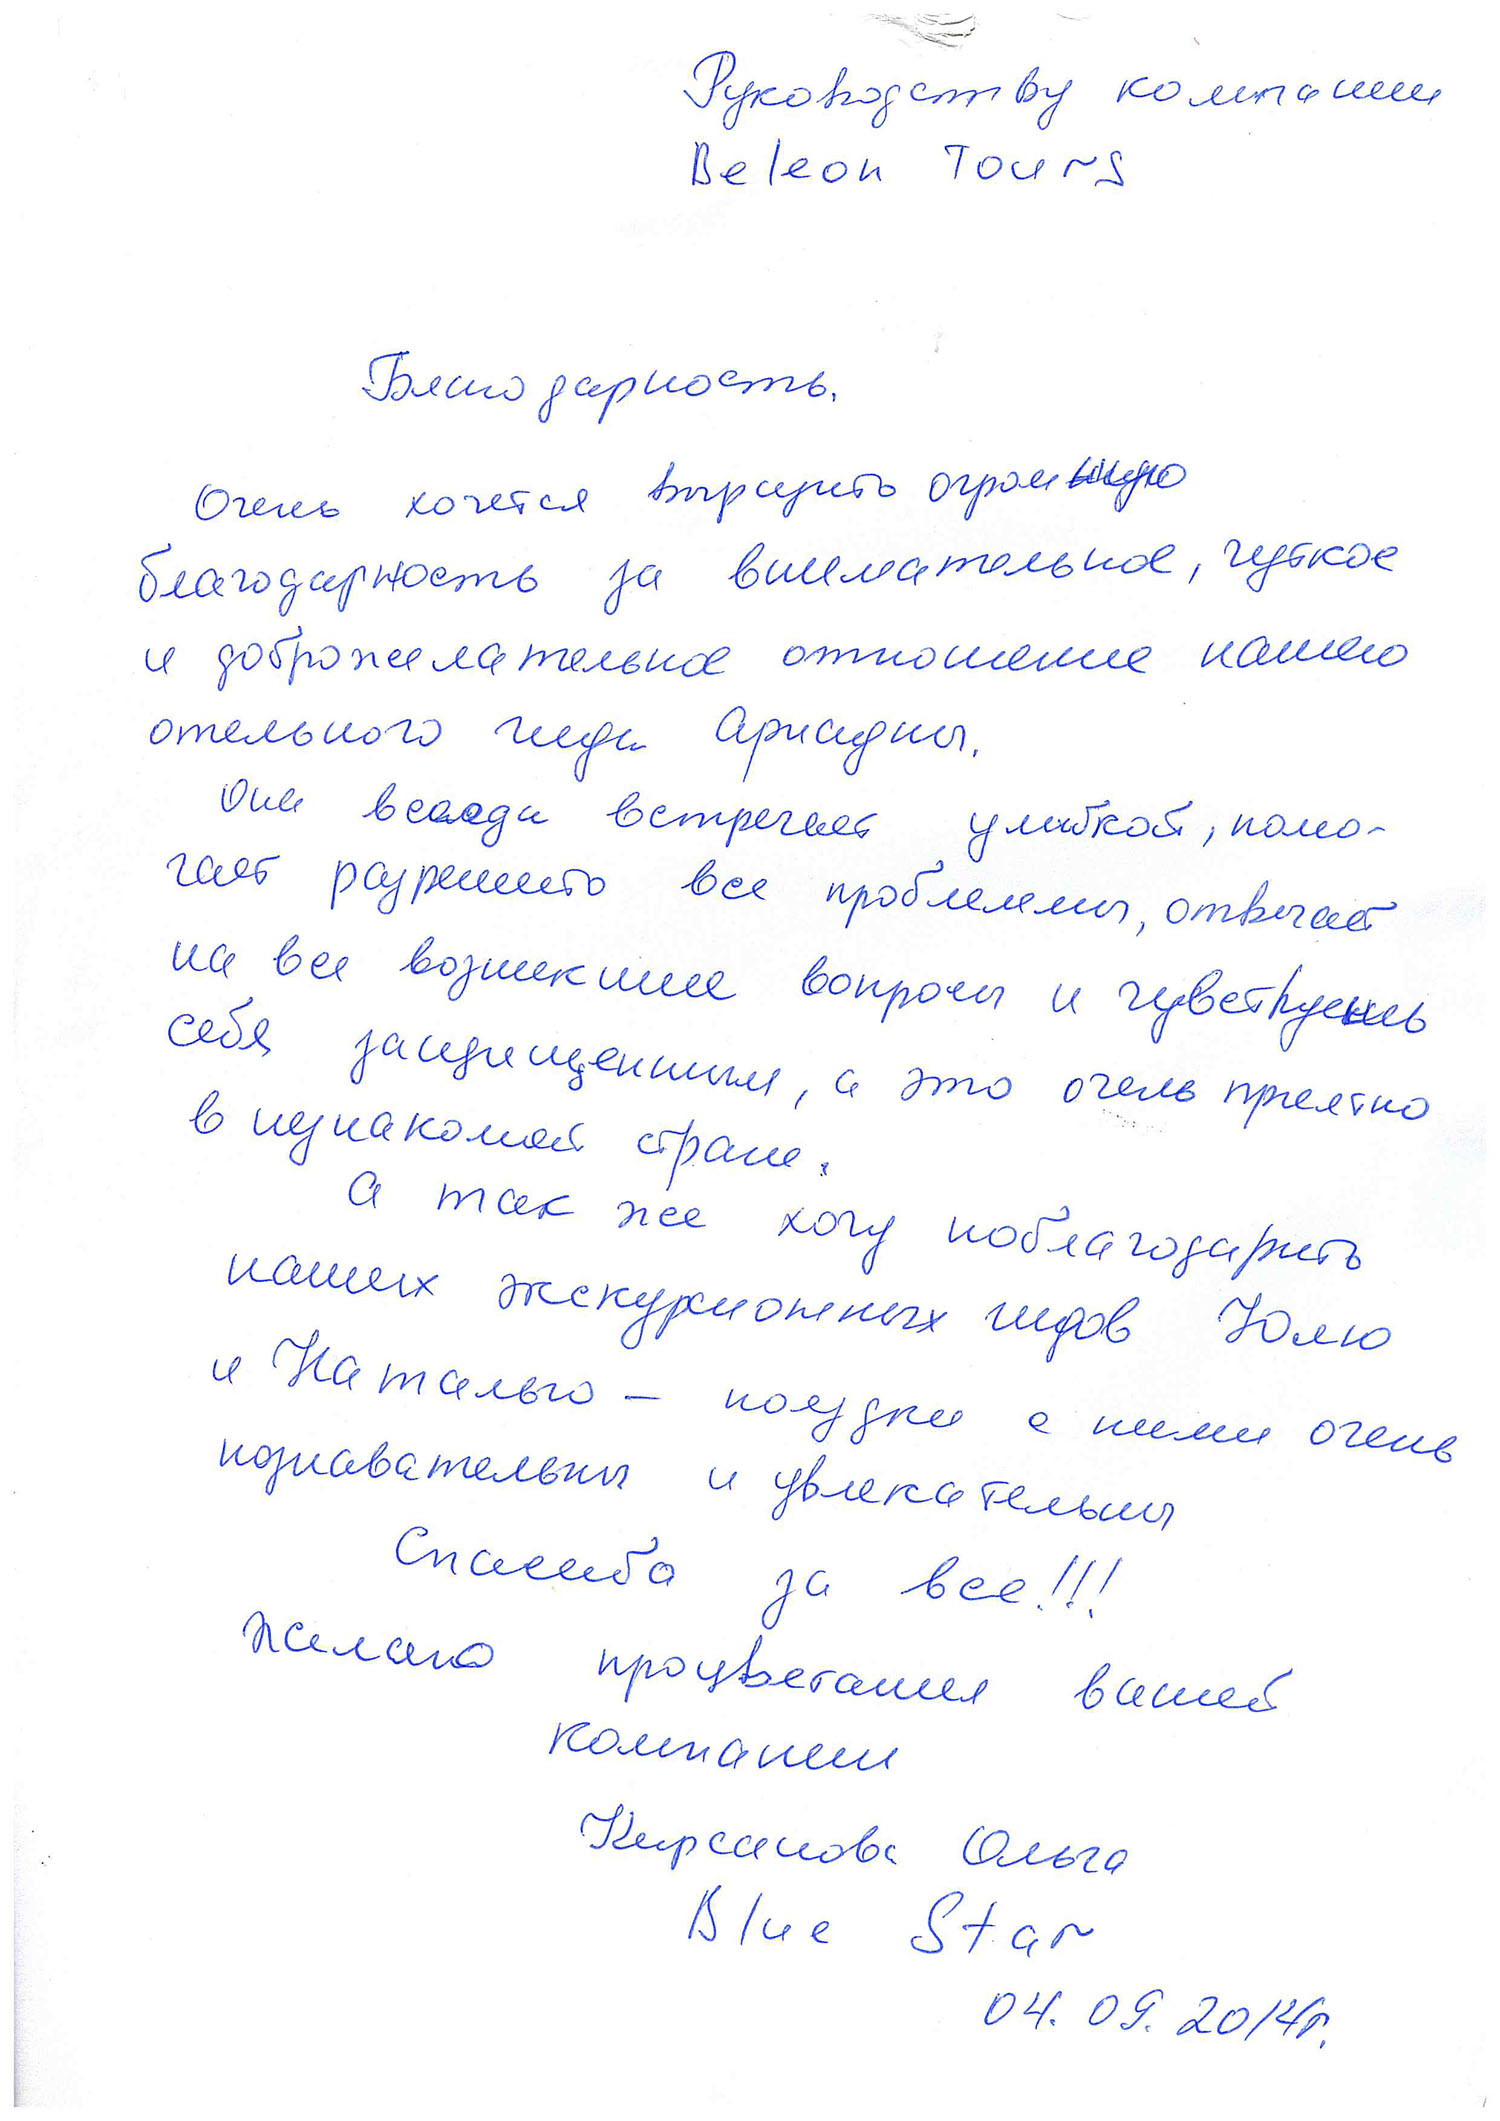 Руководству компании
Beleon Tours
Благодарность.
Очень хочется выразить огромную
благодарность за внимательное, чуткое
и доброжелательное отношение нашего
отельного гида Ариадны.
Она всегда встречает улыбкой, помо-
гает разрешить все проблемы, отвечает
на все возникшие вопросы и чувствуешь
себя защищенным, а это очень приятно
в незнакомой стране.
А так же хочу поблагодарить
наших экскурсионных гидов Юлю
и Наталью – поездки с ними очень
познавательны и увлекательны
Спасибо за все!!!
Желаю процветания вашей
компании
Кирсанова Ольга
Blue Star
04.09.2014г.